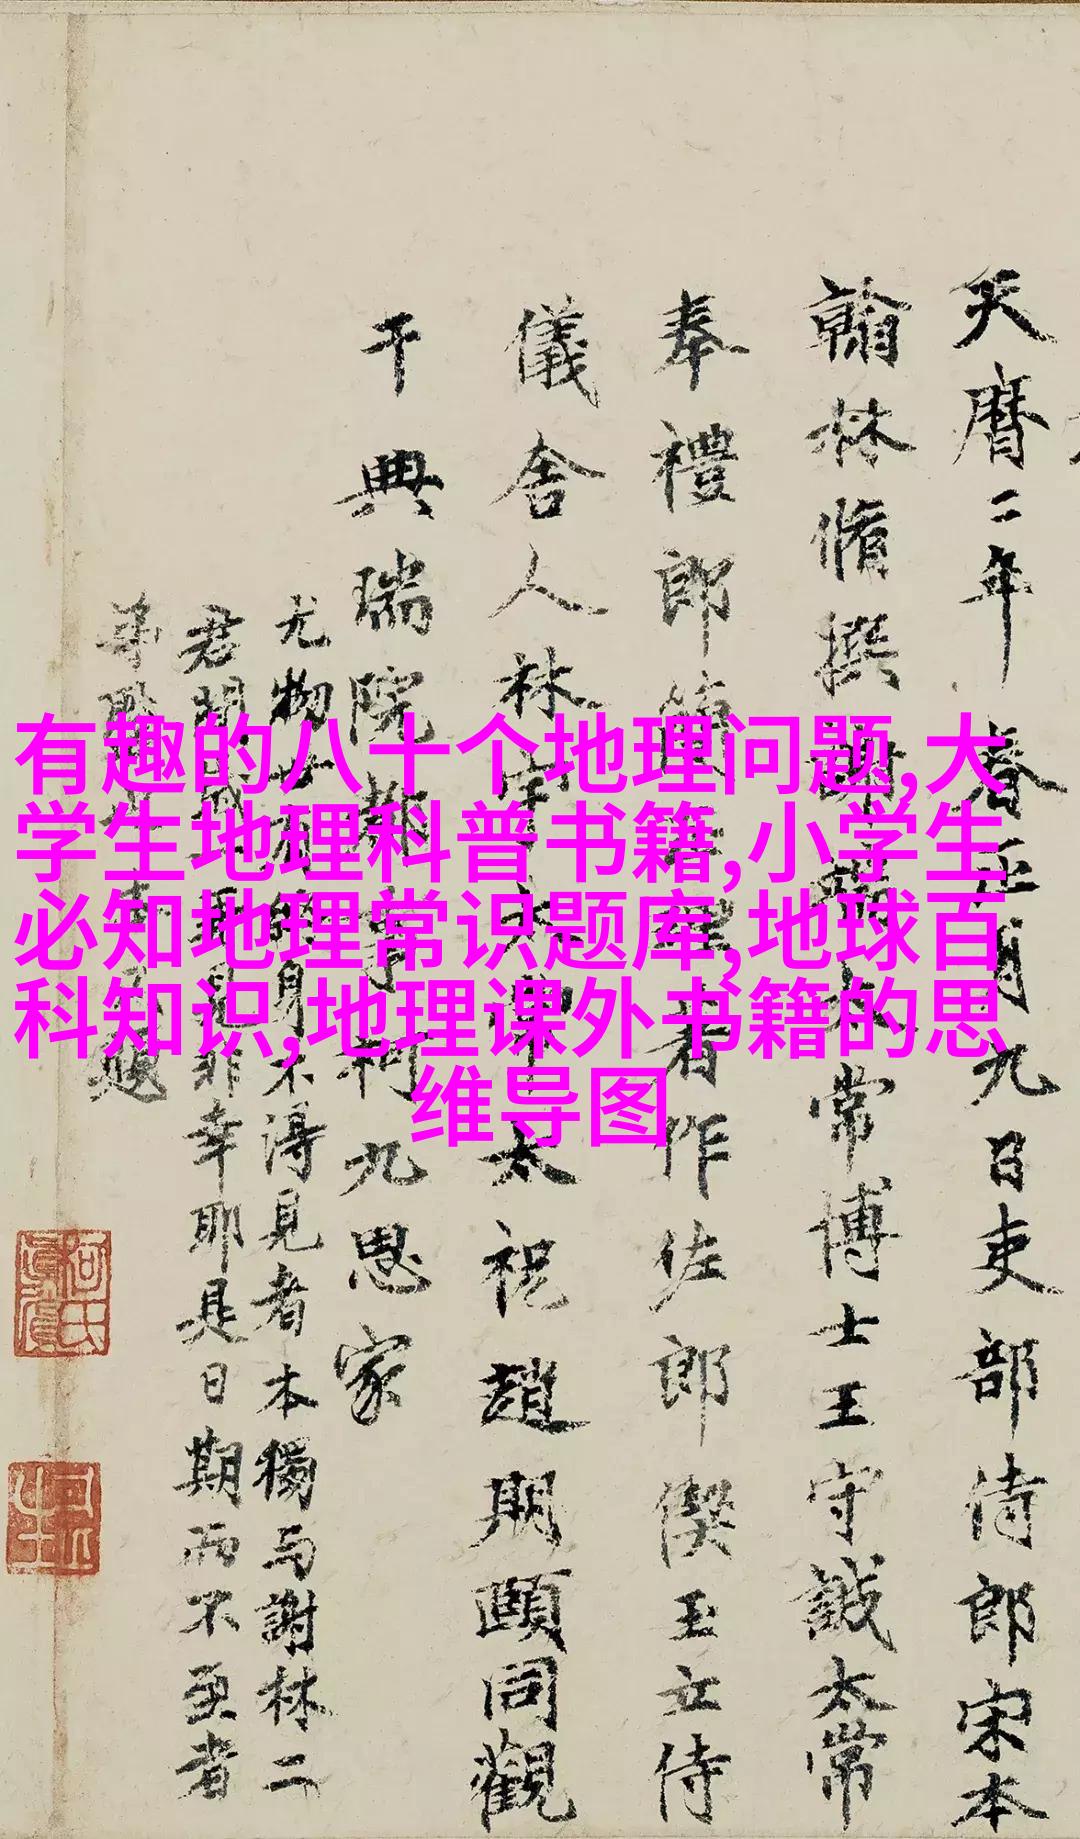 天曆二年春正月九日吏部侍郎宋本
翰林脩撰謝端太常博士王守誠太常
奉禮郎簡著作佐郎偰玉立侍
儀舍人林宇太祝趙期頤同觀
于典瑞院都事柯九思家
尤物身不得見者本獨与謝林二
君非幸耶是日期而不至者
題
有趣的八十个地理问题,大
学生地理科普书籍,小学生
必知地理常识题库,地球百
科知识,地理课外书籍的思
维导图